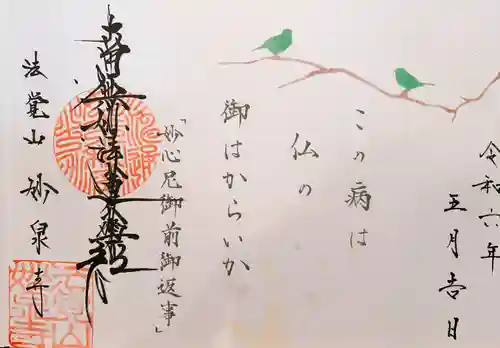 令和六年
五月吉日
この病は
仏の
御はからいか
「妙心尼御前御返事」
南無妙法蓮華経
法覚山 妙泉寺